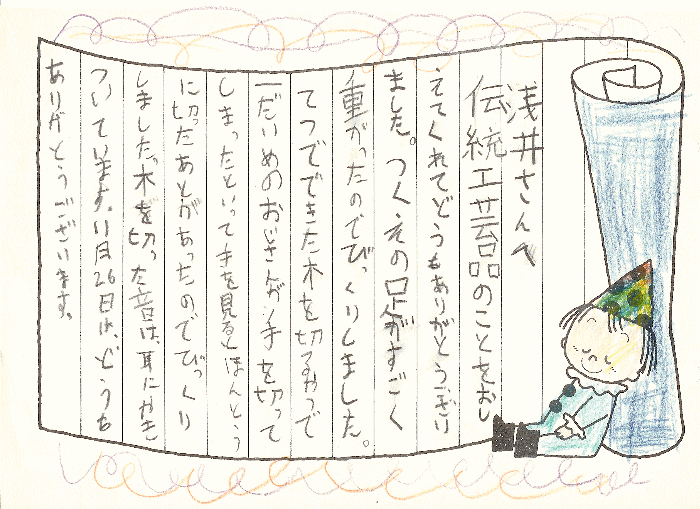 浅井さんへ
伝統工芸品のことをおし
えてくれてどうもありがとうござい
ました。つくえの足がすごく
重がったのでびっくりしました。
てつでできた木を切るやつで
一だいめのおじさんが手を切って
しまったといって手を見るとほんとう
に切ったあとがあったのでびっくり
しました。木を切った音は、耳にやき
ついています。11月26日は、どうも
ありがとうございます。